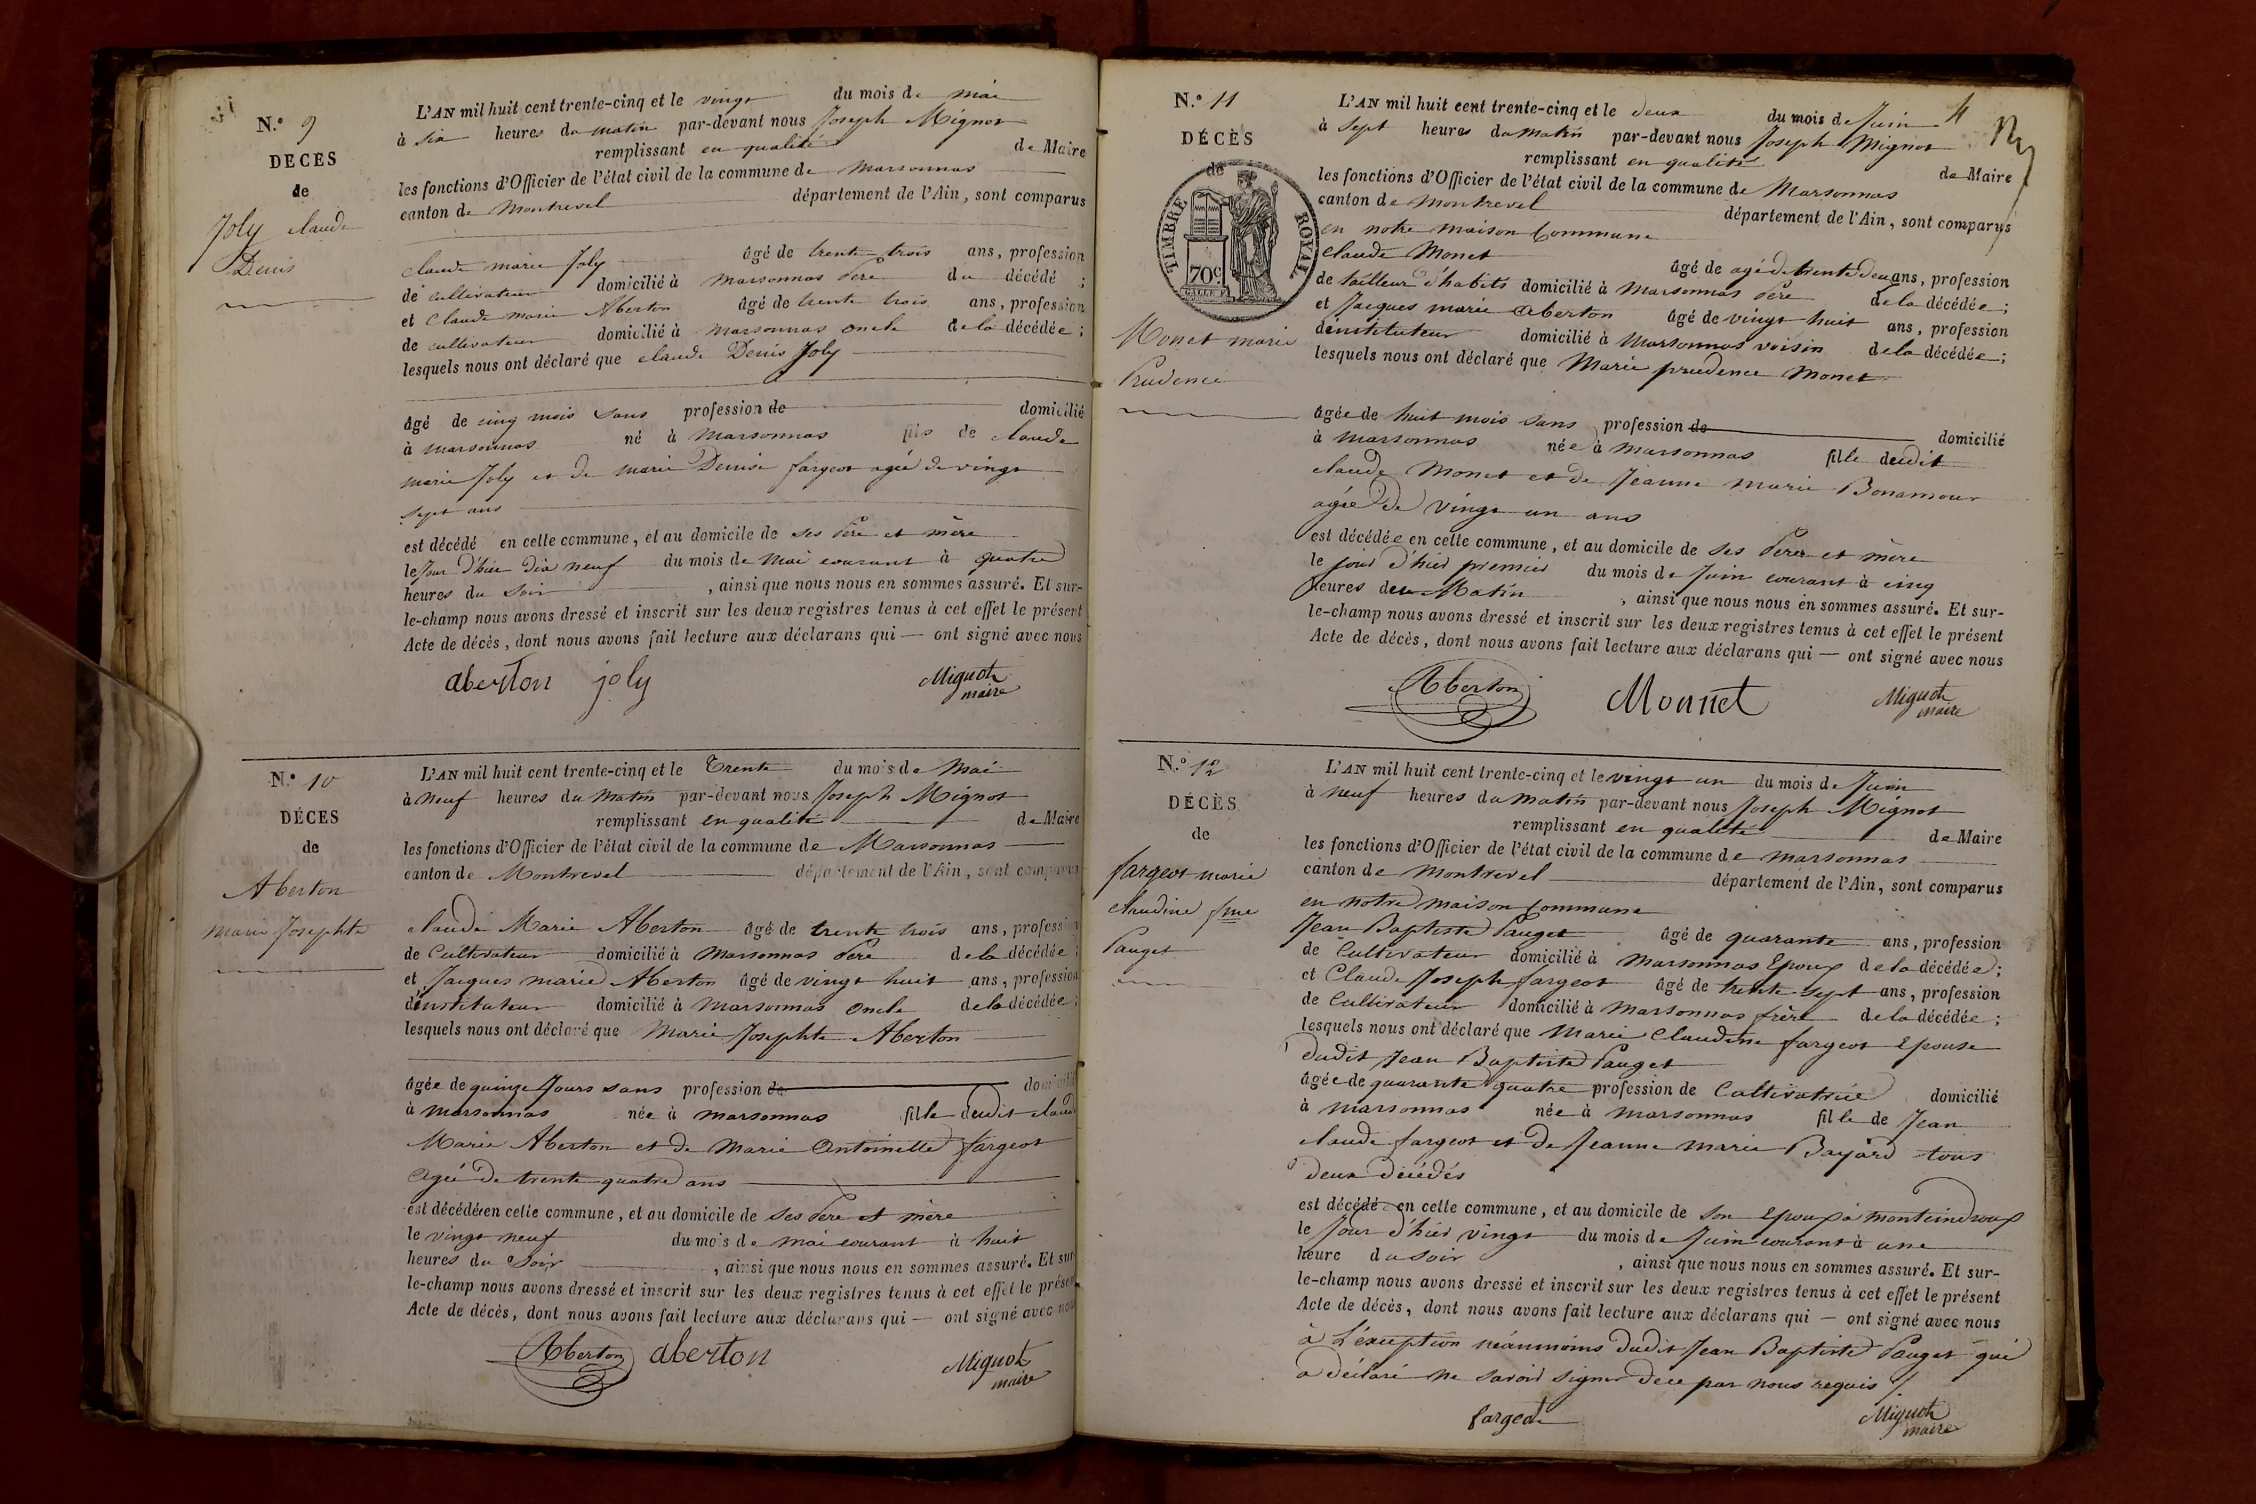 N.° 9
DECES
de
Joly claude
Denis
L'AN mil huit cent trente-cinq et le vingt du mois de mai
à six heures du matin par-devant nous Joseph Mignot
remplissant en qualité de Maire
les fonctions d'Officier de l'état civil de la commune de Marsonnas
canton de Montrevel département de l'Ain, sont comparus
claude marie Joly âgé de trente trois ans, profession
de cultivateur domicilié à Marsonnas Père du décédé ;
et Claude marie Aberton âgé de trente trois ans, profession
de cultivateur domicilié à Marsonnas oncle de la décédée ;
lesquels nous ont déclaré que claude Denis Joly
âgé de cinq mois sans profession de domicilié
à marsonnas né à Marsonnas fils de claude
marie Joly et de marie Denise fargeot agée de vingt
sept ans
est décédé en cette commune, et au domicile de ses Père et mère
le Jour d'hier dix neuf du mois de Mai courant à quatre
heures du Soir , ainsi que nous nous en sommes assuré. Et sur-
le-champ nous avons dressé et inscrit sur les deux registres tenus à cet effet le présent
Acte de décès, dont nous avons fait lecture aux déclarans qui — ont signé avec nous
aberton joly Mignot
maire
N.° 10
DÉCES
de
Aberton
marie Josephte
L'AN mil huit cent trente-cinq et le Trente du mois de Mai
à neuf heures du Matin par-devant nous Joseph Mignot
remplissant en qualité de Maire
les fonctions d'Officier de l'état civil de la commune de Marsonnas
canton de Montrevel département de l'Ain, sont comparus
claude Marie Aberton âgé de trente trois ans, profession
de Cultivateur domicilié à Marsonnas Père de la décédée ;
et Jacques marie Aberton âgé de vingt huit ans, profession
d'instituteur domicilié à Marsonnas oncle de la décédée ;
lesquels nous ont déclaré que Marie Josephte Aberton
âgée de quinze Jours sans profession de domicilié
à Marsonnas née à marsonnas fille dudit claude
Marie Aberton et de Marie Antoinette fargeot
agée de trente quatre ans
est décédée en cette commune, et au domicile de ses Père et mère
le vingt neuf du mois de mai courant à huit
heures du Soir , ainsi que nous nous en sommes assuré. Et sur
le-champ nous avons dressé et inscrit sur les deux registres tenus à cet effet le présent
Acte de décès, dont nous avons fait lecture aux déclarans qui — ont signé avec nous
Aberton aberton Mignot
maire
4
N.° 11
DÉCÈS
de
TIMBRE ROYAL
70c
Monet marie
Prudence
L'AN mil huit cent trente-cinq et le deux du mois de Juin
à sept heures du matin par-devant nous Joseph Mignot
remplissant en qualité de Maire
les fonctions d'Officier de l'état civil de la commune de Marsonnas
canton de Montrevel département de l'Ain, sont comparus
en notre maison Commune
claude Monet âgé de agé de trente deux ans, profession
de tailleur d'habits domicilié à Marsonnas Père de la décédée ;
et Jacques marie Aberton âgé de vingt huit ans, profession
d'instituteur domicilié à Marsonnas voisin de la décédée ;
lesquels nous ont déclaré que Marie prudence Monet
âgée de huit mois sans profession de domicilié
à Marsonnas née à Marsonnas fille dudit
claude Monet et de Jeanne Marie Bonamour
agée de vingt un ans
est décédée en cette commune, et au domicile de ses Père et mère
le jour d'hier premier du mois de Juin courant à cinq
heures du Matin , ainsi que nous nous en sommes assuré. Et sur-
le-champ nous avons dressé et inscrit sur les deux registres tenus à cet effet le présent
Acte de décès, dont nous avons fait lecture aux déclarans qui — ont signé avec nous
Aberton Monnet Mignot
maire
N.° 12
DÉCÈS
de
fargeot marie
claudine fme
Pauget
L'AN mil huit cent trente-cinq et le vingt un du mois de Juin
à neuf heures du matin par-devant nous Joseph Mignot
remplissant en qualité de Maire
les fonctions d'Officier de l'état civil de la commune de marsonnas
canton de Montrevel département de l'Ain, sont comparus
en notre maison Commune
Jean Baptiste Pauget âgé de quarante ans, profession
de Cultivateur domicilié à Marsonnas Epoux de la décédée ;
et Claude Joseph fargeot âgé de trente sept ans, profession
de Cultivateur domicilié à Marsonnas frère de la décédée ;
lesquels nous ont déclaré que Marie Claudine fargeot Epouse
dudit Jean Baptiste Pauget
âgée de quarante quatre profession de Cultivatrice domicilié
à Marsonnas née à Marsonnas fille de Jean
claude fargeot et de Jeanne marie Bayard tous
deux décédés
est décédé en cette commune, et au domicile de son Epoux à monteindroux
le Jour d'hier vingt du mois de Juin courant à une
heure du soir , ainsi que nous nous en sommes assuré. Et sur-
le-champ nous avons dressé et inscrit sur les deux registres tenus à cet effet le présent
Acte de décès, dont nous avons fait lecture aux déclarans qui — ont signé avec nous
à L'exception néanmoins dudit Jean Baptiste Pauget qui
a déclaré ne savoir signer de ce par nous requis
fargeot Mignot
maire